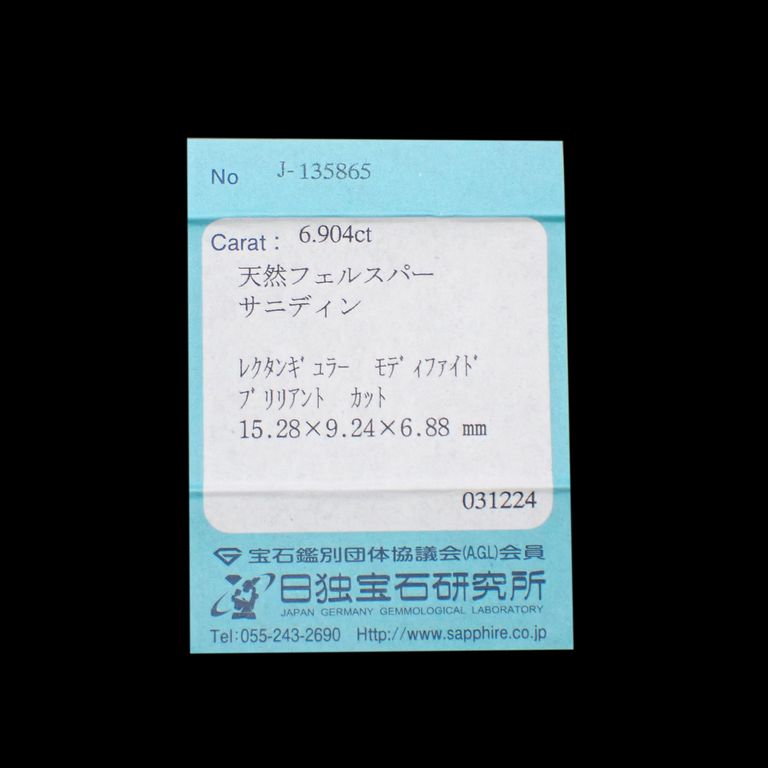 No J-135865
Carat: 6.904ct
天然フェルスパー
サニディン
ﾚｸﾀﾝｷﾞｭﾗｰ ﾓﾃﾞｨﾌｧｲﾄﾞ
ﾌﾞﾘﾘｱﾝﾄ ｶｯﾄ
15.28×9.24×6.88 mm
031224
宝石鑑別団体協議会(AGL)会員
日独宝石研究所
JAPAN GERMANY GEMMOLOGICAL LABORATORY
Tel:055-243-2690 Http://www.sapphire.co.jp